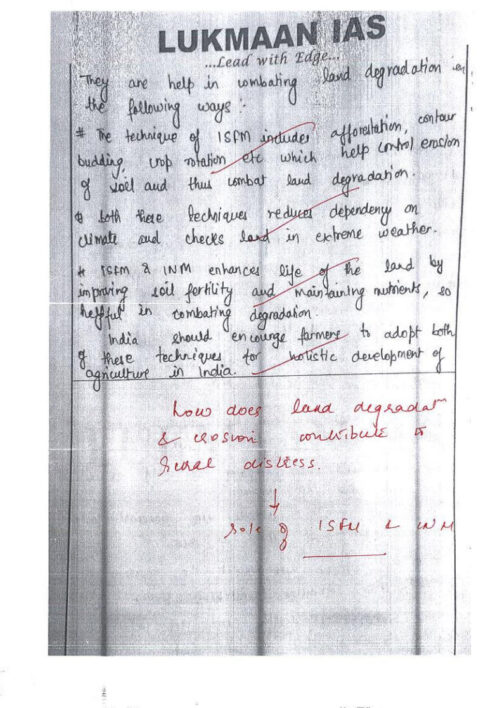 LUKMAAN IAS
...Lead with Edge...
They are help in combating land degradation in
the following ways :-
# The technique of ISFM includes afforestation, contour
budding, crop rotation etc which help control erosion
of soil and thus combat land degradation.
# both these techniques reduces dependency on
climate and checks land in extreme weather.
# ISFM & INM enhances life of the land by
improving soil fertility and maintaining nutrients, so
helpful in combating degradation.
India should encourge farmers to adopt both
of these techniques for holistic development of
agriculture in India.
how does land degradatn
& erosion contribute to
Rural distress.
↓
role of ISFM & INM